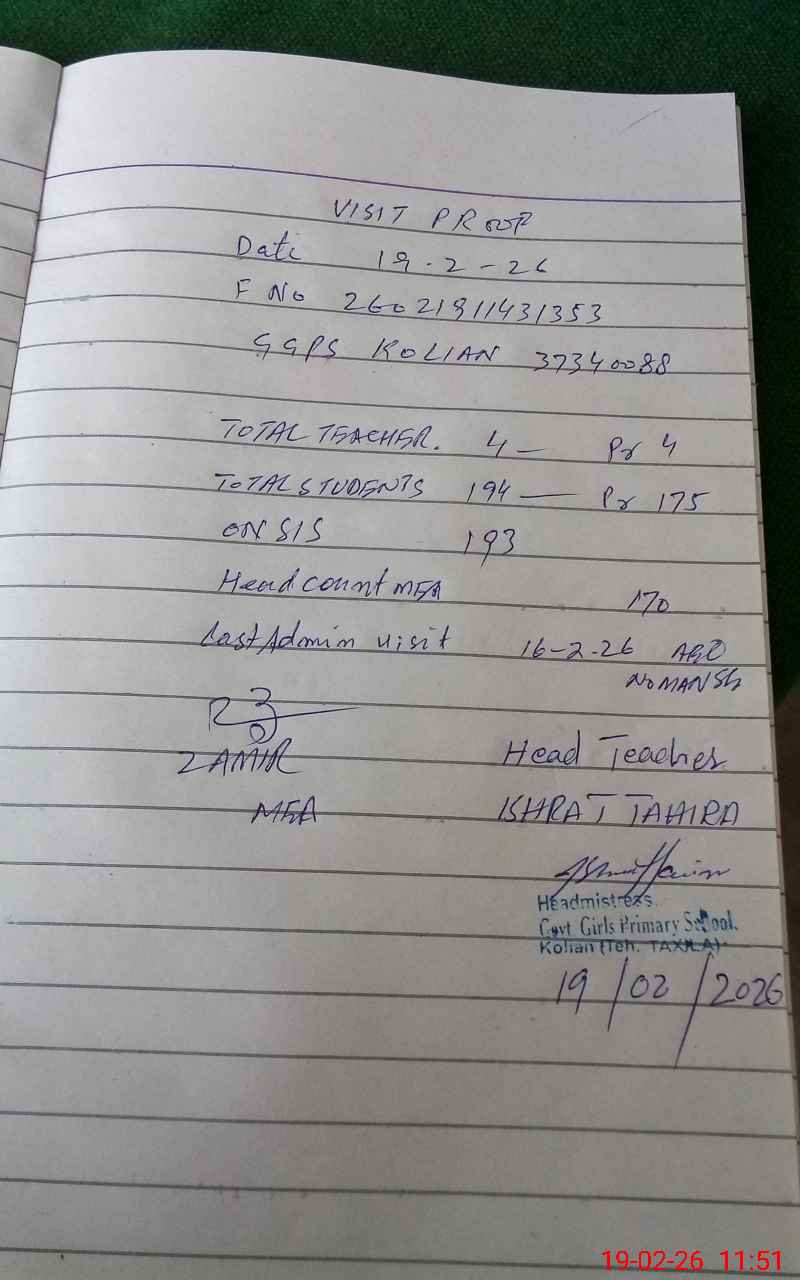 VISIT PROOF
Date 19-2-26
F No 26021911431353
GGPS KOLIAN 37340088
TOTAL TEACHER. 4 — Pr 4
TOTAL STUDENTS 194 — Pr 175
ON SIS 193
Head count MEA 170
Last Admin visit 16-2-26 AEO
NOMAN Sb
ZAMIR Head Teacher
MEA ISHRAT TAHIRA
Headmistress.
Govt Girls Primary School.
Kolian (Teh. TAXILA)
19/02/2026
19-02-26 11:51